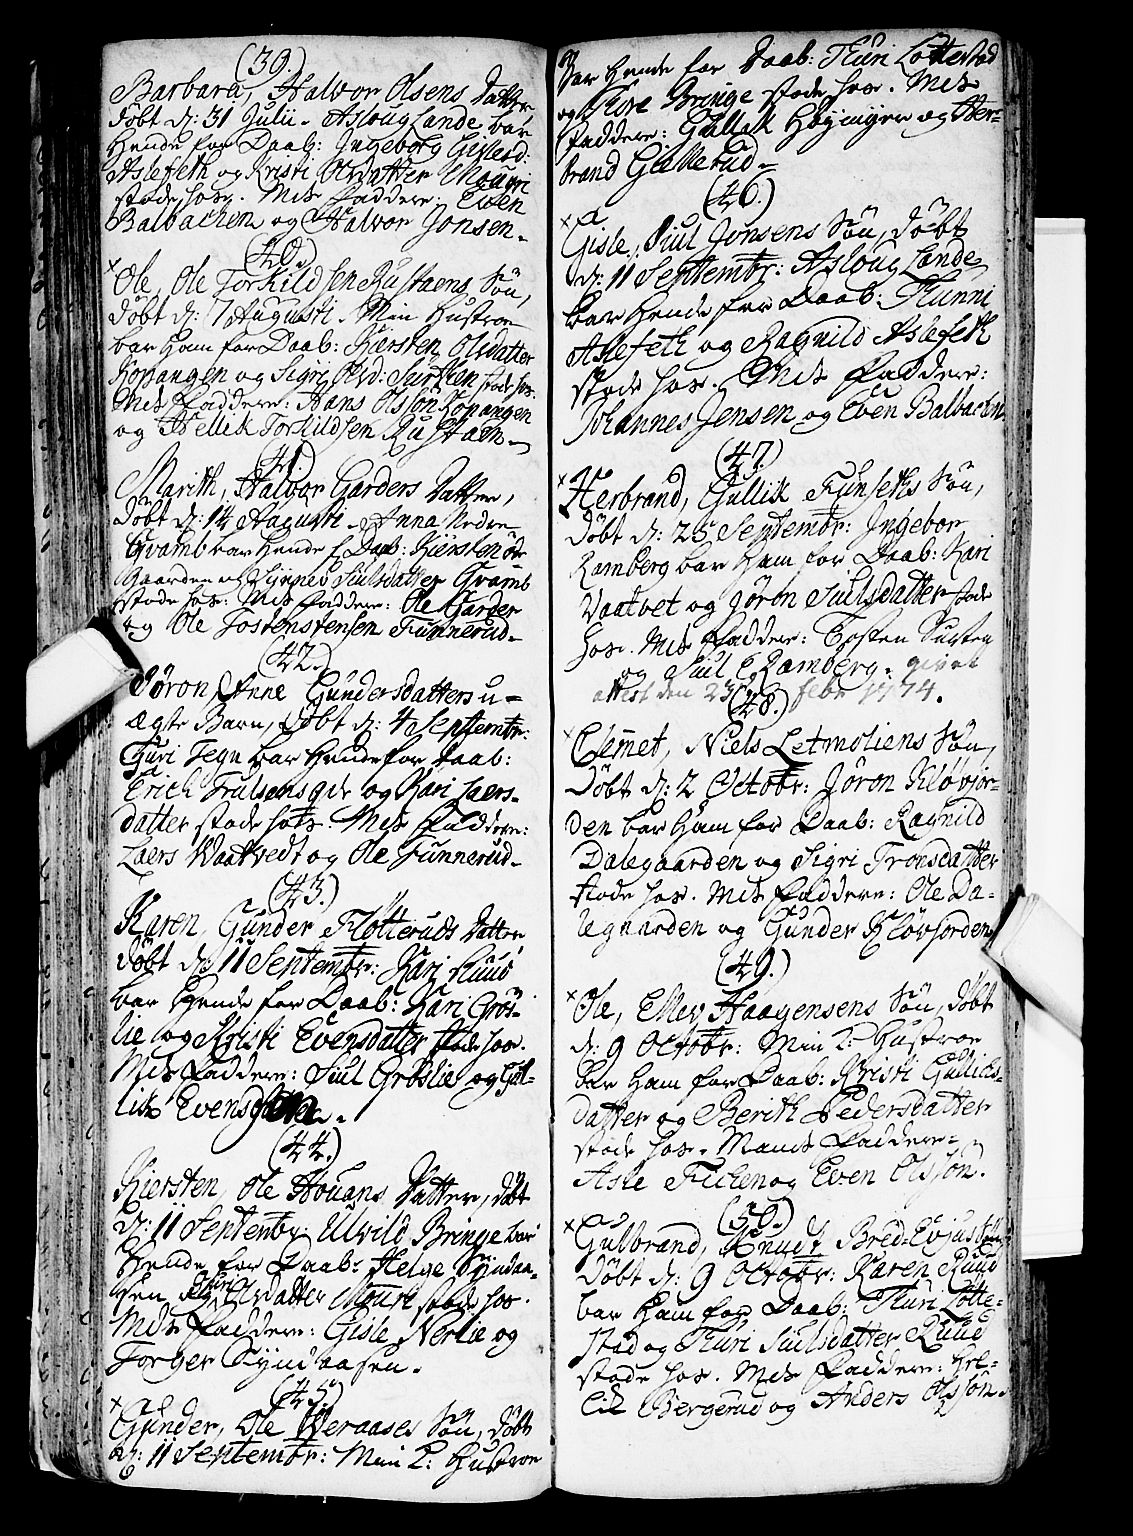 (39.)
Barbara, Halvor Olsens Datter
Döbt d: 31 Julii. Asloug Lande bar
Hende for Daab: Ingeborg Gislesd:
Aslefeth og Kristi Olsdatter Mouri
stode hos. Mds Faddere: Even
Balbachen og Halvor Jonsen.
(40.)
Ole, Ole Torkildsen Rustaens Sön,
Döbt d: 7 Augusti. Min Hustroe
bar Ham for Daab: Kiersten Olsdatter
Kopangen og Sigri Olsd: Surtken stode hos.
Mds Faddere: Hans Olssön Kopangen
og Hellik Torkildsen Rustaen.
(41.)
Marith, Halvor Garders Datter,
Döbt d: 14 Augusti. Anna Nedre
Gvamb bar Hende f Daab: Kiersten öde
Gaarden og Siuls datter Gvamb
stode hos: Mds Faddere: Ole Garder
og Ole Tostenstensen Funnerud.
(42.)
Jöron, Anne Gundersdatters u-
ægte Barn, Döbt d: 4 Septembr:
Guri Tegn bar Hende for Daab:
Erich og Kari Laers-
datter stode hos. Mds Faddere:
Laers Waatvedt og Ole Funnerud.
(43.)
Karen, Gunder Flötteruds Datter
Döbt d: 11 Septembr: Kari Ruud
bar Hende for Daab: Kari Grös-
lie og Kristi Evensdatter stode hos.
Mds Faddere: Siul Gröslie og Gul-
lik Evens
(44.)
Kiersten, Ole Houans Datter, döbt
d: 11 Septembr: Ulvild Bringe bar
Hende for Daab: Helge Syndaa-
sen og Guri Olsdatter Mouri stode hos.
Mds Faddere: Gisle Nerlie og
Torger Syndaasen.
(45.)
Gunder, Ole Weraases Sön, Döbt
d: 11 Septembr: Min 2: Hustroe
bar Hende for Daab: Thuri Löttestad
og Thore Bringe stode hos. Mds
Faddere: Gullik Höymyer og Her-
brand Gullerud.
(46.)
Gisle, Siul Jonsens Sön, Döbt
d: 11 Septembr: Asloug Lande
bar Hende for Daab: Thunni
Aslefeth og Ragnild Aslefeth
stode hos. Mds Faddere:
Johannes Jensen og Even Balbachen
(47.)
Herbrand, Gullik Funseths Sön,
Döbt d: 25 Septembr: Ingebor
Ramberg bar Ham for Daab: Kari
Vaatvet og Jöron Siulsdatter stode
hos. Mds Faddere: Tosten
og Siul Ramberg. givet
attest den 23 febr 1774.
(48.)
Clemet, Niels Letmoliens Sön,
Döbt d: 2 Octobr: Jöron Klövjor-
den bar Ham for Daab: Ragnild
Dalegaarden og Sigri Tronsdatter
stode hos. Mds Faddere: Ole Da-
legaarden og Gunder Klövjorden
(49.)
Ole, Ellev Haagensens Sön, Döbt
d: 9 Octobr: Min 2: Hustroe
bar Ham for Daab: Kristi Gullichs-
datter og Berith Pedersdatter
stode hos. Mands Faddere:
Asle og Even Olssön.
(50.)
Gulbrand, Knudt Bred-
Döbt d: 9 Octobr: Karen Ruud
bar Ham for Daab: Thuri Lötte-
stad og Thuri Siulsdatter Ruud
stode hos. Mds Faddere: Hel-
lik Bergerud og Anders Olssön.